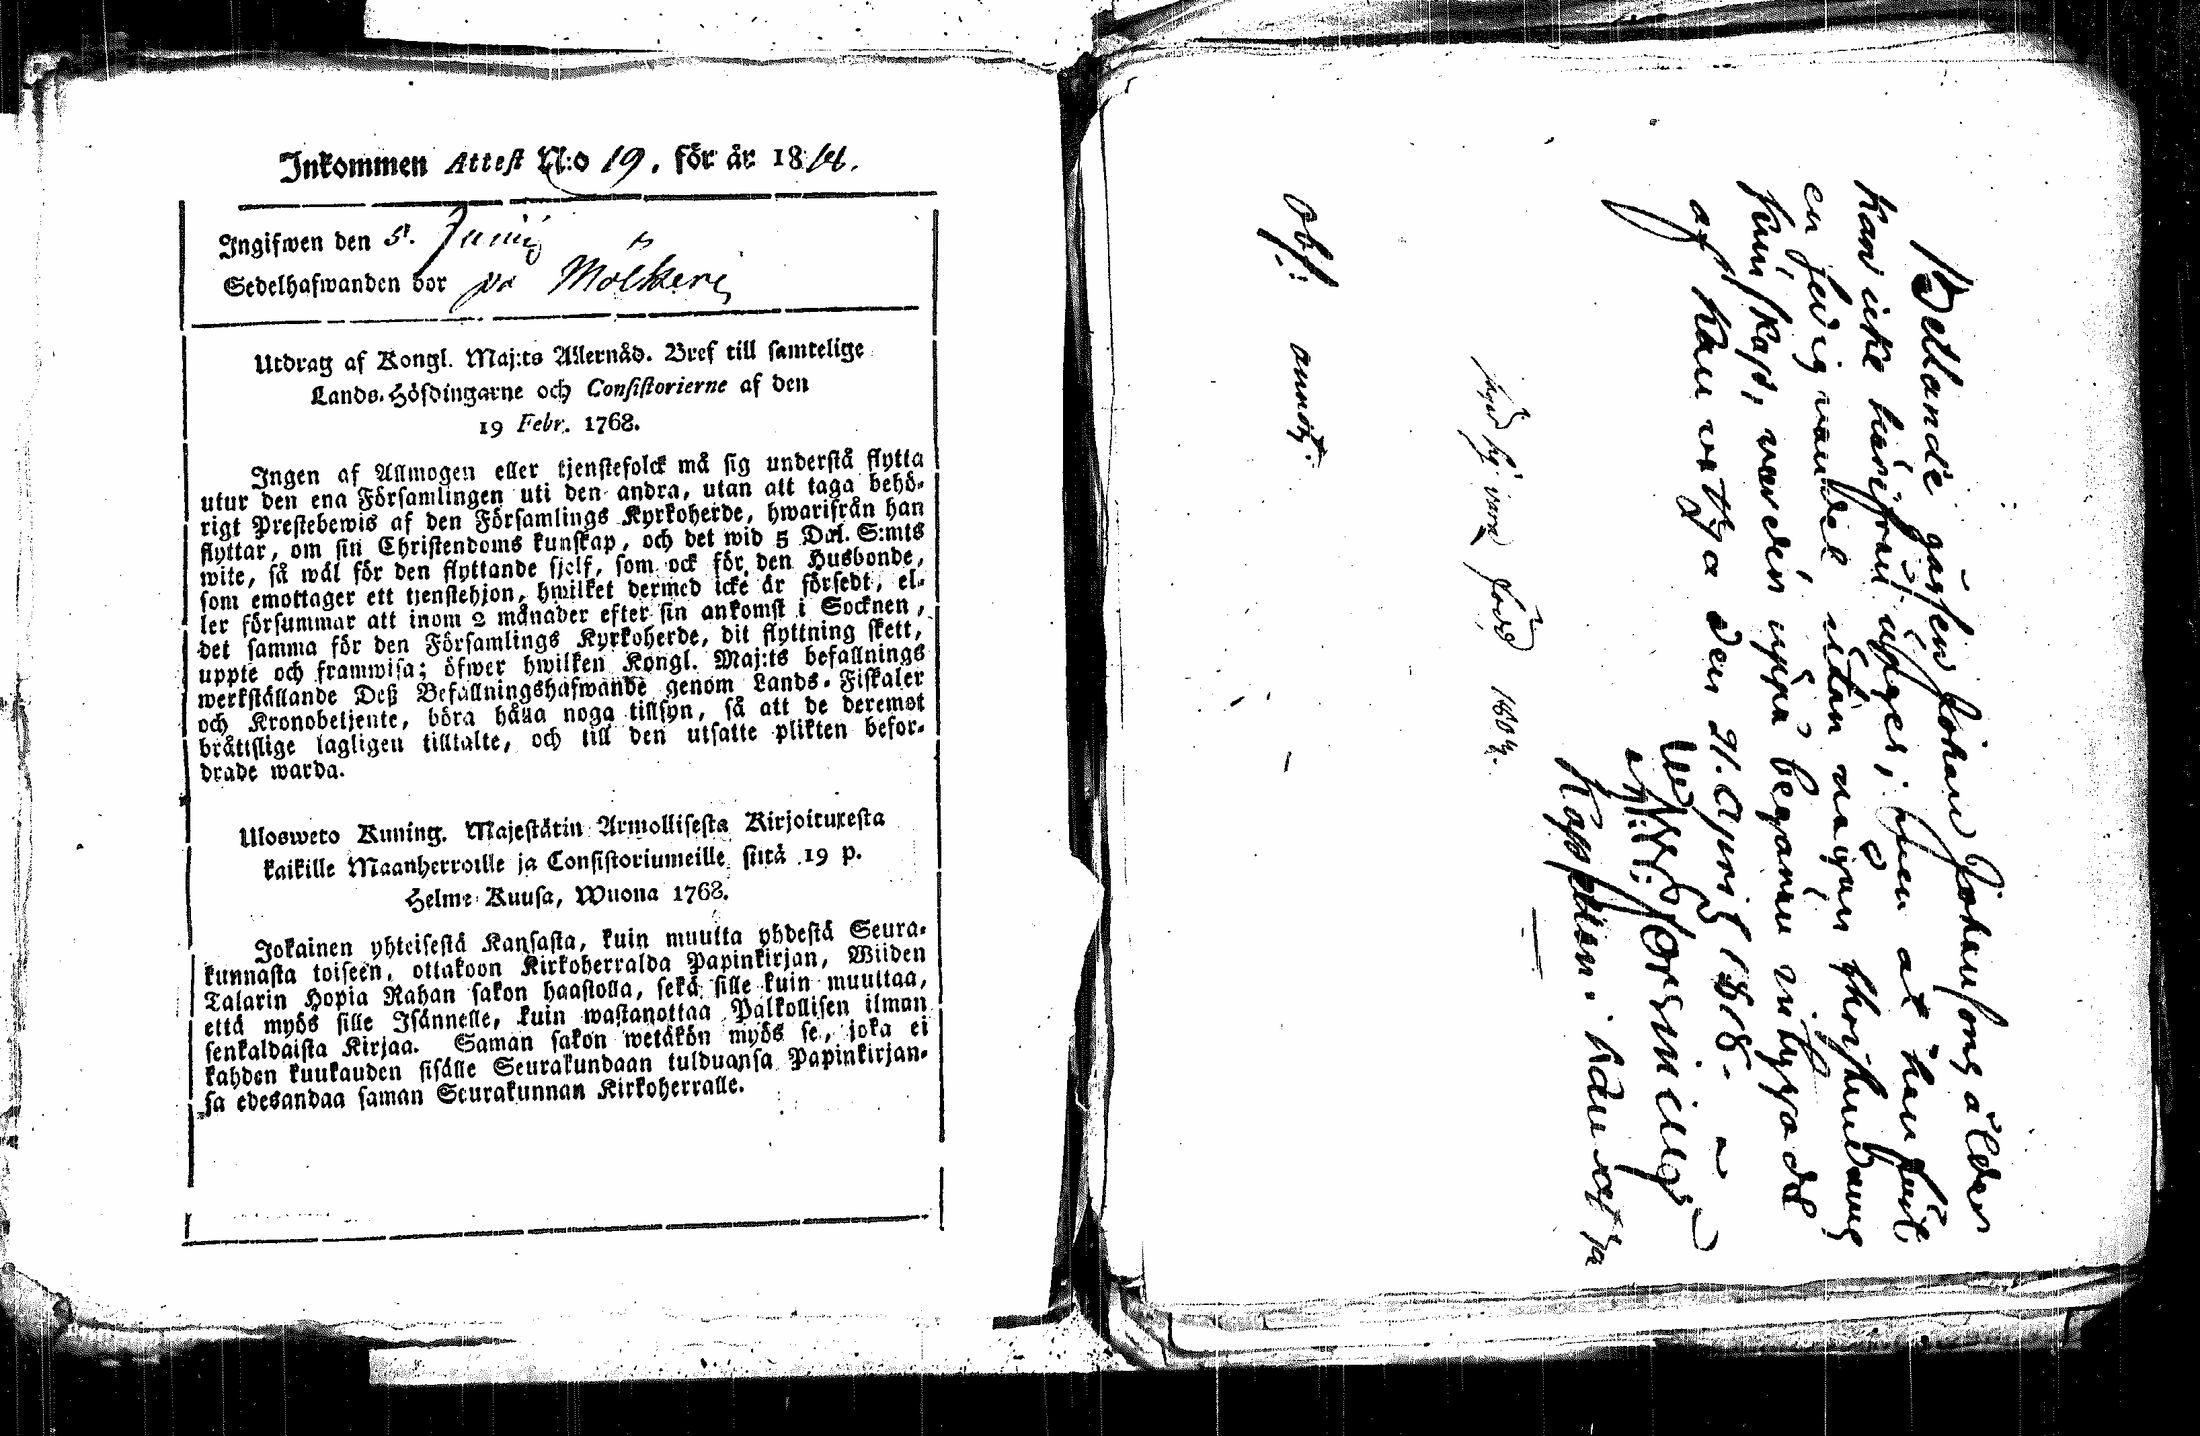 Inkommen Attest N:o 19. för år 18
Ingifwen den 5. Junii
Sedelhafwanden bor på
Utdrag af Kongl. Maj:ts Allernåd. Bref till samtelige
Lands-Höfdingarne och Consistorierne af den
19 Febr. 1768.
Ingen af Allmogen eller tjenstefolck må sig understå flytta
utur den ena Församlingen uti den andra, utan att taga behö-
rigt Prestebewis af den Församlings Kyrkoherde, hwarifrån han
flyttar, om sin Christendoms kunskap, och det wid 5 Dal. S:mts
wite, så wäl för den flyttande sjelf, som ock för den Husbonde,
som emottager ett tjenstehjon, hwilket dermed icke är försedt, el-
ler försummar att inom 2 månader efter sin ankomst i Socknen,
det samma för den Församlings Kyrkoherde, dit flyttning skett,
uppte och framwisa; öfwer hwilken Kongl. Maj:ts befallnings
werkställande Deß Befallningshafwande genom Lands-Fiskaler
och Kronobetjente, böra hålla noga tillsyn, så att de deremot
bråttslige lagligen tilltalte, och till den utsatte plikten befor-
drade warda.
Ulosweto Kuning. Majestätin Armollisesta Kirjoituxesta
kaikille Maanherroille ja Consistoriumeille, siitä 19 p.
Helme-Kuusa, Wuona 1768.
Jokainen yhteisestä Kansasta, kuin muutta yhdestä Seura-
kunnasta toiseen, ottakoon Kirkoherralda Papinkirjan, Wiiden
Talarin Hopia Rahan sakon haastolla, sekä sille kuin muuttaa,
että myös sille Isännelle, kuin wastanottaa Palkollisen ilman
senkaldaista Kirjaa. Saman sakon wetäkön myös se, joka ei
kahden kuukauden sisälle Seurakundaan tulduansa Papinkirjan-
sa edesandaa saman Seurakunnan Kirkoherralle.
gåssen Johan Johansons ålder
kan icke härifrån uppges; men at han fört
en sedig vandel utan någon
kunskap, varder uppå begäran
af den 21. April 1818.
Kapellan i
Obs: annot: